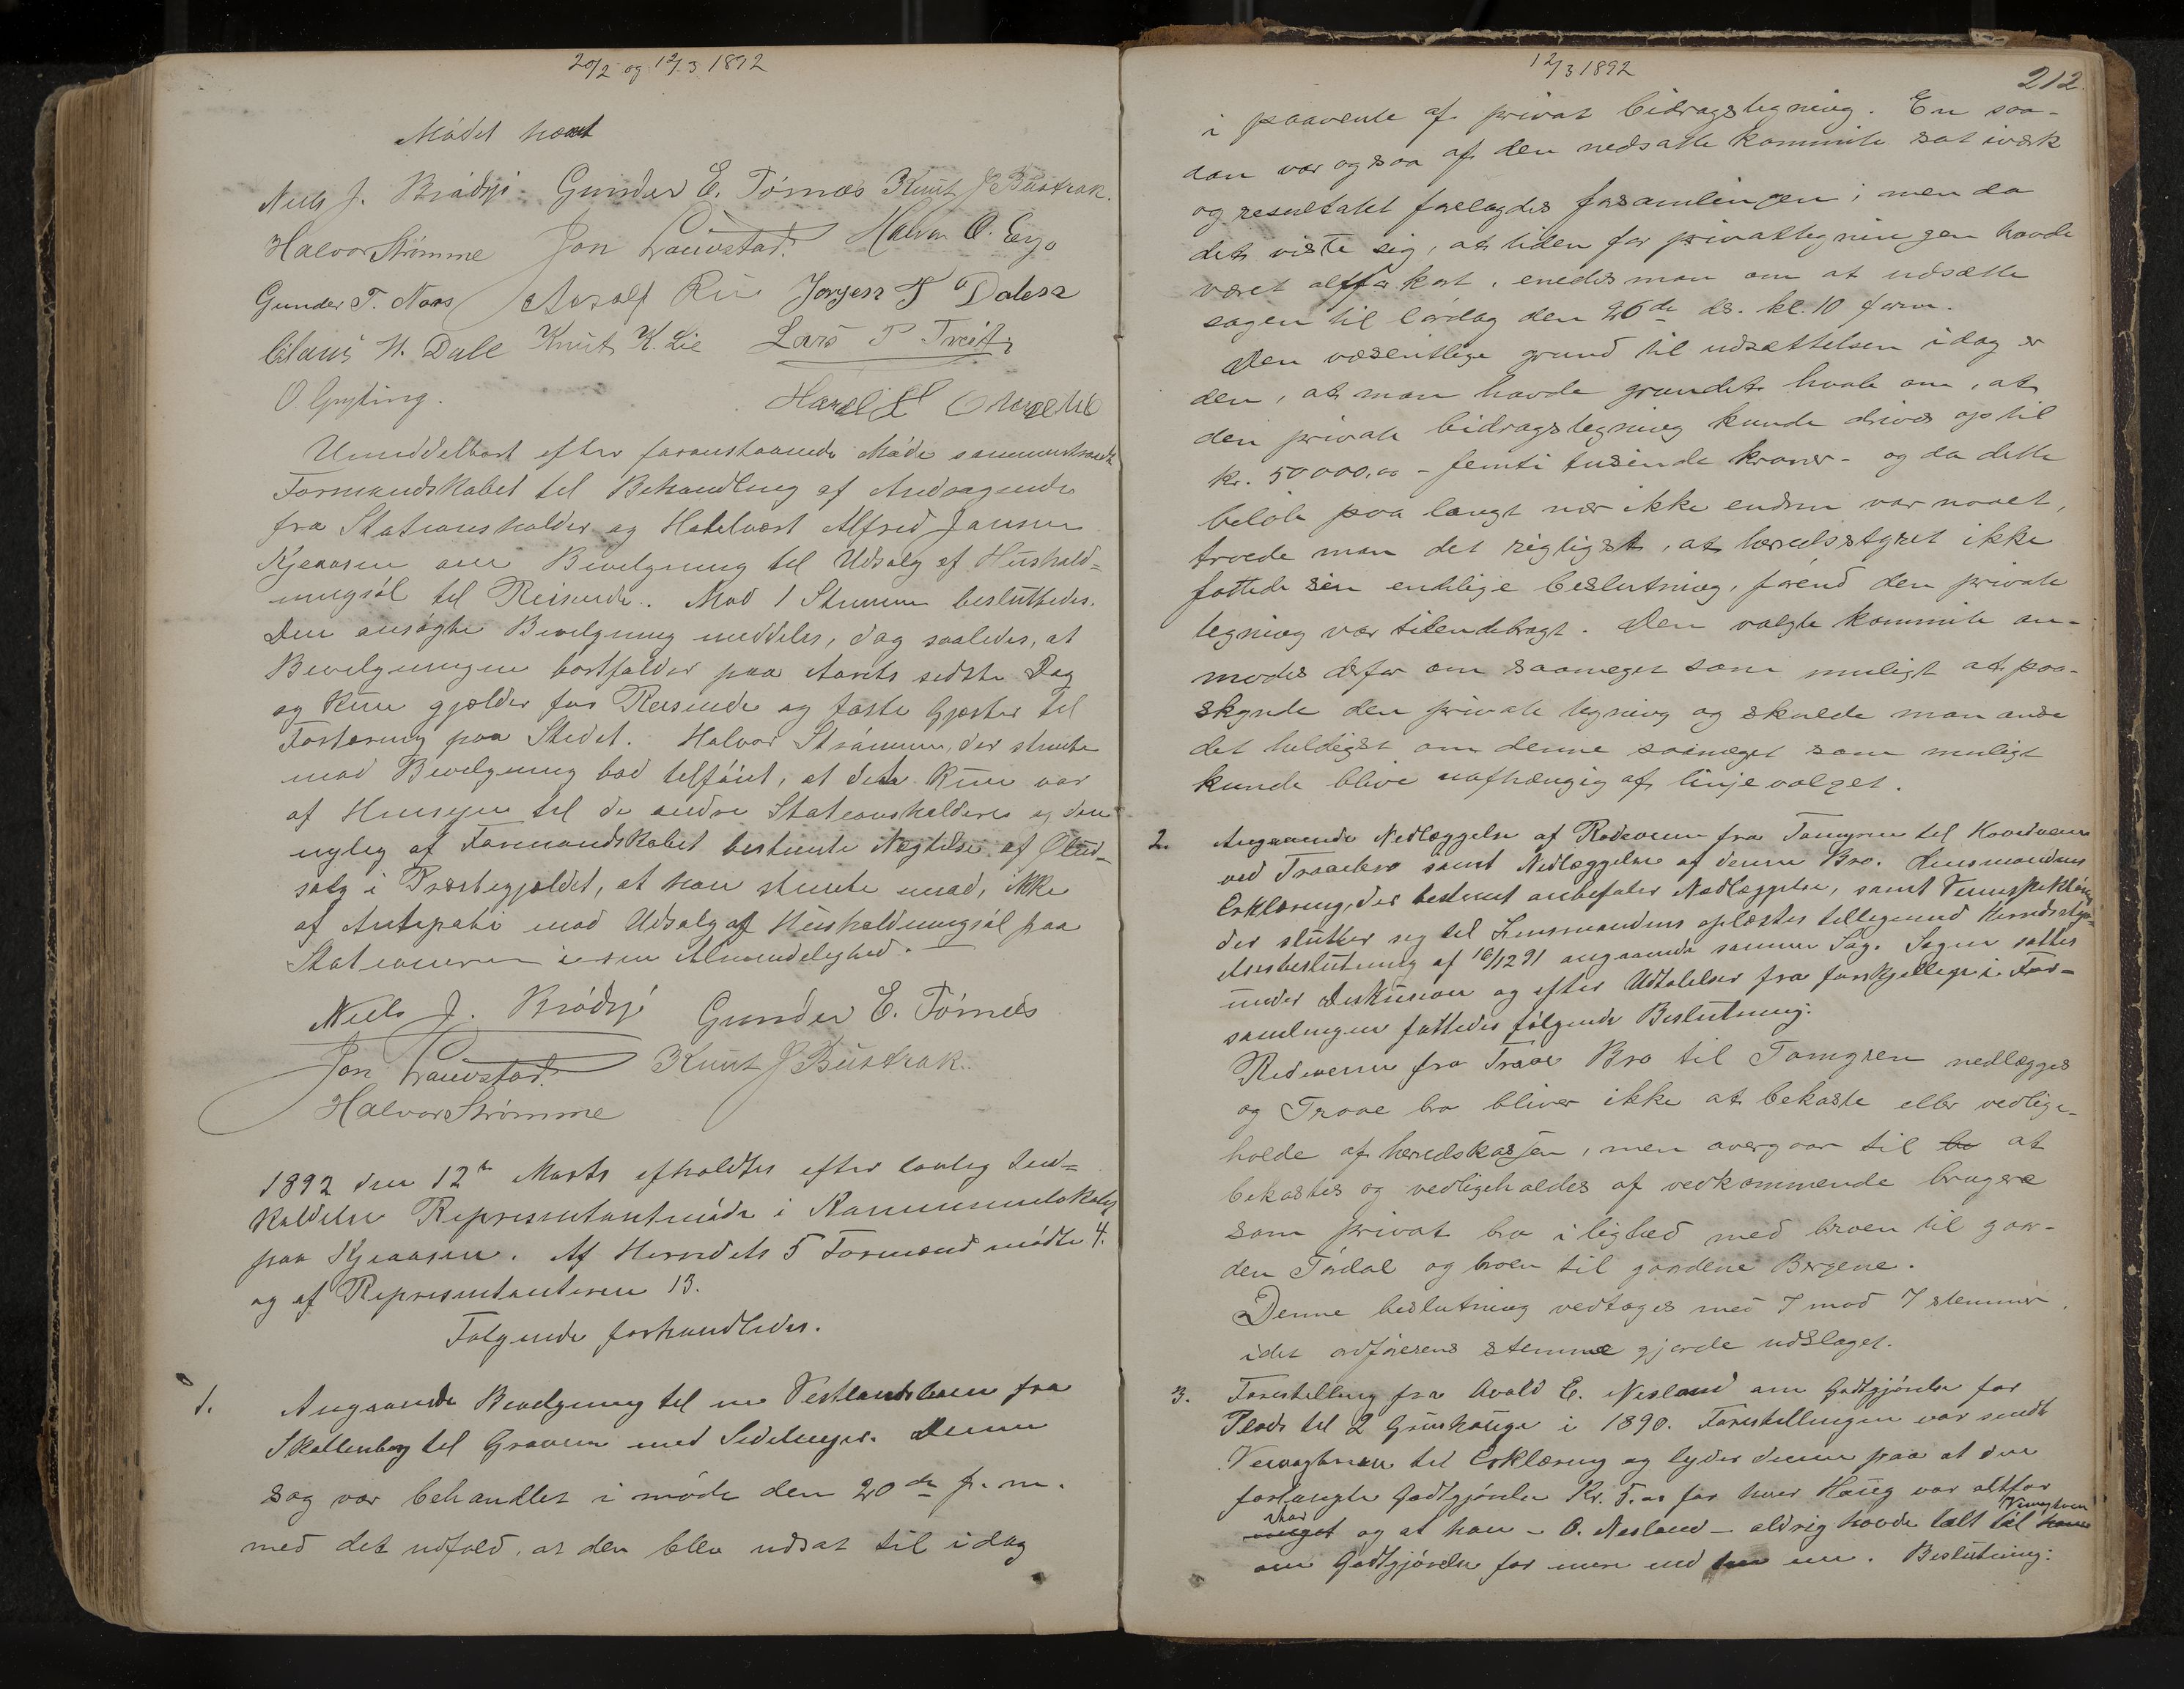 20/2 og 12/3 1892
Mødet hævet
Niels J. Brødsjø. Gunder E. Tórnæs Knut J Bustrak.
Halvor Strømme Jon Lauvstad. Halvor O.
Gunder T. Naas Aasolf Jørgen T Dalen
Claus H. Dale Knut K. Lie Lars P Treit
O. Gryting.
Umiddelbart efter foranstaaende Møde sammentraadte
Formandskabet til Behandling af Andragende
fra Stationsholder og Hotelvært Alfred Jansen
Kjeaasen om Bevilgning til Udsalg af Hushold=
ningsøl til Reisende. Mod 1 Stemme besluttedes.
Den ansøgte Bevilgning meddeles, dog saaledes, at
Bevilgningen bortfalder paa Aarets sidste Dag
og kun gjælder for Reisende og faste Gjæster til
Fortæring paa Stedet. Halvor Strømme, der stemte
mod Bevilgning bad tilføiet, at dette kun var
af Hensyn til de andre Stationsholdere og den
nylig af Formandskabet bestemte Nægtelse af Ølud-
salg i Præstegjældet, at han stemte imod, ikke
af Antipati mod Udsalg af Husholdningsøl paa
Stationerne i sin Almindelighed.
Niels J. Brødsjø Gunder E. Tórnæs
Jon Lauvstad. Knut J Bustrak.
Halvor Strømme
1892 den 12te Marts afholdtes efter lovlig Ind=
kaldelse Representantmøde i Kommunelokalet
paa Kjeaasen. Af Herredets 5 Formænd mødte 4.
og af Representanterne 13.
Følgende forhandledes.
1. Angaaende Bevilgning til en Vestlandsbane fra
Skollenborg til Graven med Sidelinjer. Denne
sag var behandlet i møde den 20de f. m.
med det udfald, at den blev udsat til idag
12/3 1892
212.
i paavente af privat bidragstegning. En saa-
dan var ogsaa af den nedsatte kommite sat ivæk
og resultatet forelagdes forsamlingen; men da
det viste sig, at tiden for privattegningen havde
været altfor kort, enedes man om at udsætte
sagen til lørdag den 26de ds. kl. 10 form.
Den væsentlige grund til udsættelsen idag er
den, at man havde grundet haab om, at
den private bidragstegning kunde drives op til
kr. 50000,00 - femti tusinde kroner - og da dette
beløb paa langt nær ikke endnu var naaet,
troede man det rigtigst, at herredsstyret ikke
fattede sin endelige beslutning, førend den private
tegning var tilendebragt. Den valgte kommite an-
modes derfor om saameget som muligt at paa-
skynde den private tegning og skulde man anse
det heldigst om denne saameget som muligt
kunde blive uafhængig af linjevalget.
2. Angaaende Nedlæggelse af Rodeveien fra Tomyren til Hovedveien
ved Traaebro samt Nedlæggelse af denne Bro. Lensmandens
Erklæring, der bestemt anbefaler Nedlæggelse, samt
der slutter sig til Lensmandens oplæstes tilligemed Herredsstyr-
elsesbeslutning af 16/12 91 angaaende samme Sag. Sagen sattes
under Diskusion og efter Udtalelser fra forskjellige i For-
samlingen fattedes følgende Beslutning:
Rodeveien fra Traae Bro til Tomyren nedlægges
og Traae bro bliver ikke at bekoste eller vedlige-
holde af herredskassen, men overgaar til at
bekostes og vedligeholdes af vedkommende brugere
som privat bro i lighed med broen til gaar-
den Tórdal og broen til gaardene Bergene.
Denne beslutning vedtoges med 7 mod 7 stemmer,
idet ordførerens stemme gjorde udslaget.
3. Forestilling fra Avald E. Nesland om Godtgjørelse for
Plads til 2 Grushauge i 1890. Forestillingen var sendt
Veivogteren til Erklæring og lyder denne paa at den
forlangte Godtgjørelse Kr. 5.00 for hver Haug var altfor
stor og at han - O. Nesland - aldrig havde talt til Veivogteren
om Godtgjørelse for mere end en. Beslutning: